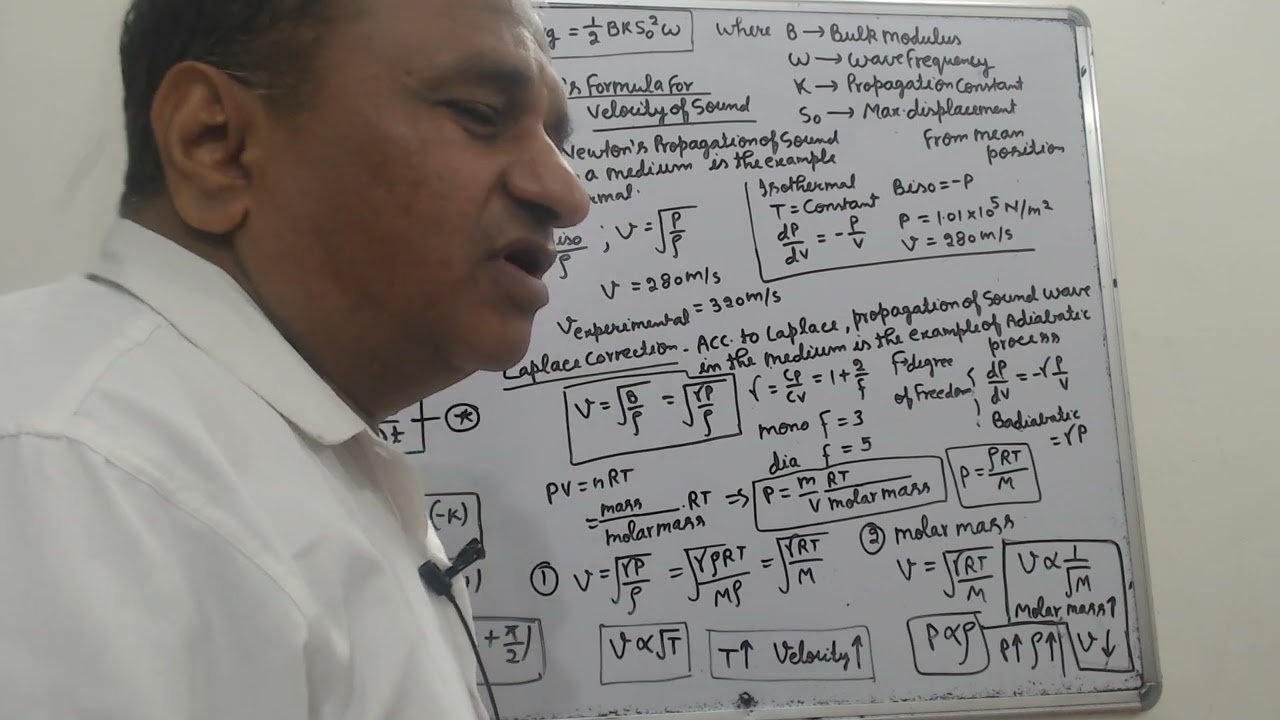 g = 1/2 BKS₀²ω
where B → Bulk modulus
ω → wave frequency
K → Propagation Constant
S₀ → Max. displacement
From mean
position
's Formula for
Velocity of Sound
Newton's Propagation of Sound
a medium is the example
rmal.
iso/ρ ; v = √(P/ρ)
v = 280 m/s
V experimental = 320 m/s
Isothermal
T = Constant
dP/dv = -P/v
Biso = -P
P = 1.01 × 10⁵ N/m²
v = 280 m/s
Laplace Correction - Acc. to Laplace, propagation of Sound wave
in the medium is the example of Adiabatic
process
v = √(B/ρ) = √(γP/ρ)
γ = Cp/Cv = 1 + 2/f
f → degree
of Freedom
mono f = 3
dia f = 5
dP/dv = -γP/v
Badiabatic
= γP
PV = nRT
= mass/molar mass . RT ⇒ P = m RT/V molar mass
P = ρRT/M
① v = √(γP/ρ) = √(γρRT/Mρ) = √(γRT/M)
v ∝ √T
T↑ Velocity↑
② molar mass
v = √(γRT/M)
v ∝ 1/√M
Molar mass↑
v↓
P ∝ ρ
P↑ ρ↑
t
(-K)
+ π/2)